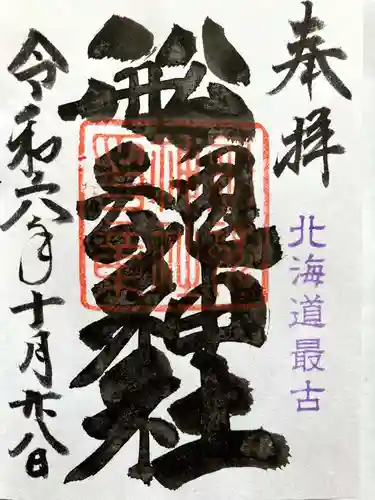 奉拝
北海道最古
舩魂神社
令和六年十月廿八日